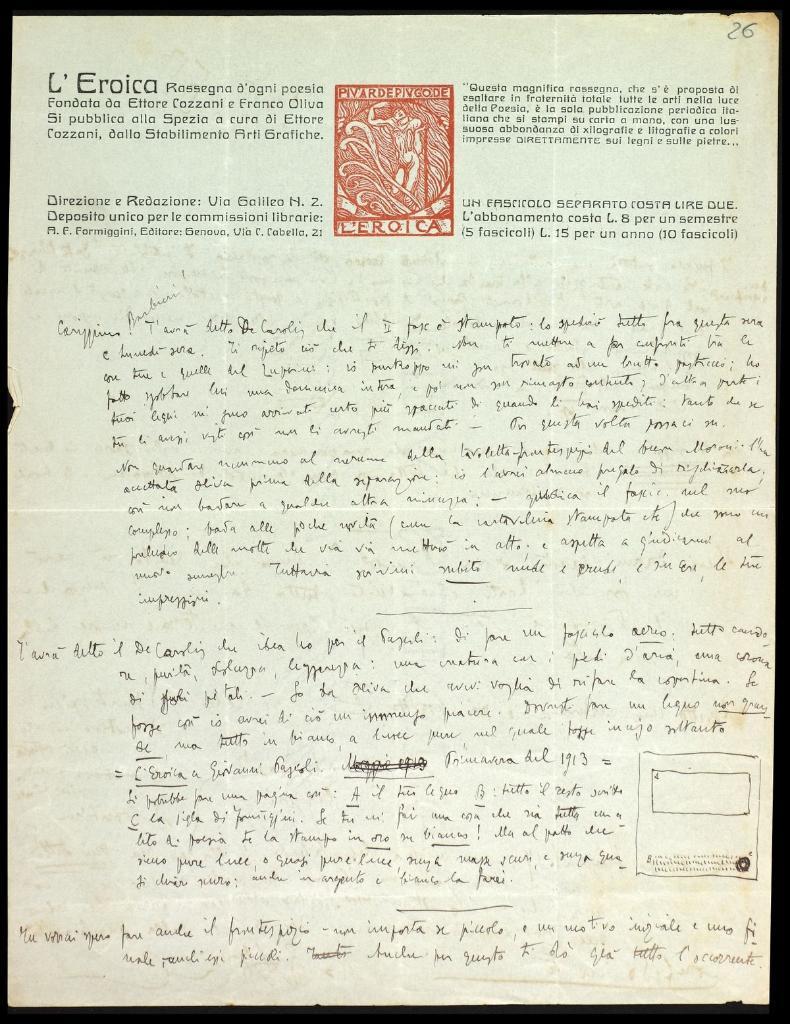 26
L'Eroica Rassegna d'ogni poesia
Fondata da Ettore Cozzani e Franco Oliva
Si pubblica alla Spezia a cura di Ettore
Cozzani, dallo Stabilimento Arti Grafiche.
Direzione e Redazione: Via Galileo N. 2.
Deposito unico per le commissioni librarie:
A. F. Formiggini, Editore: Genova, Via C. Cabella, 21
PIVARDEPIVGODE
L'EROICA
"Questa magnifica rassegna, che s'è proposta di
esaltare in fraternità totale tutte le arti nella luce
della Poesia, è la sola pubblicazione periodica ita-
liana che si stampi su carta a mano, con una lus-
suosa abbondanza di xilografie e litografie a colori
impresse DIRETTAMENTE sui legni e sulle pietre...
UN FASCICOLO SEPARATO COSTA LIRE DUE.
L'abbonamento costa L. 8 per un semestre
(5 fascicoli) L. 15 per un anno (10 fascicoli)
Carissimo Barbieri! T'avrà detto De Carolis che il II fasc è stampato: lo spedirò tutto fra questa sera
e lunedì sera. Ti ripeto ciò che ti dissi. Non ti mettere a far confronti tra le
con tue e quelle del : io purtroppo mi son trovato ad un brutto pasticcio; ho
fatto sgobbare lui una domenica intera, e poi non son rimasto contento; d'altra parte i
tuoi legni mi sono arrivati certo più spaccati di quando li hai spediti: tanto che se
tu li avessi visti così non li avresti mandati — Per questa volta passaci su.
Non guardare nemmeno al nerume della tavoletta-frontespizio del buon Moroni: l'ha
accettata Oliva prima della separazione: io l'avrei almeno pregato di
così non badare a qualche altra minuzia: — giudica il fascic. nel suo
complesso; bada alle poche novità (come la cartavelina stampata etc) che sono un
preludio delle molte che via via metterò in atto: e aspetta a giudicarmi al
nuovo semestre. Tuttavia scrivimi subito nude e crude, e sincere, le tue
impressioni.
T'avrà detto il De Carolis che idea ho per il Pascoli: di fare un fascicolo aereo: tutto cando-
re, purità, dolcezza, leggerezza: una creatura con i piedi d'aria, una corona
di petali. — So da Oliva che avevi voglia di rifare la copertina. Se
fosse così io avrei di ciò un immenso piacere. Dovresti fare un legno non gran-
de, ma tutto in bianco, a luce pura nel quale fosse inciso soltanto
= L'Eroica a Giovanni Pascoli. Maggio 1913 Primavera del 1913 =
Si potrebbe fare una pagina così: A il tuo legno B: tutto il resto scritto
C la sigla di Formiggini. Se tu mi fai una cosa che sia tutta un a-
lito di poesia te la stampo in oro su bianco! Ma al patto che
sieno pure luce, o quasi pure luce senza masse scure, e senza qua-
si chiaro scuro: anche in argento e bianco la farei.
A
B
Tu vorrai spero fare anche il frontespizio - non importa se piccolo, e un motivo iniziale e uno fi-
nale, anch'essi piccoli. Anche per questo ti dò già tutto l'occorrente.